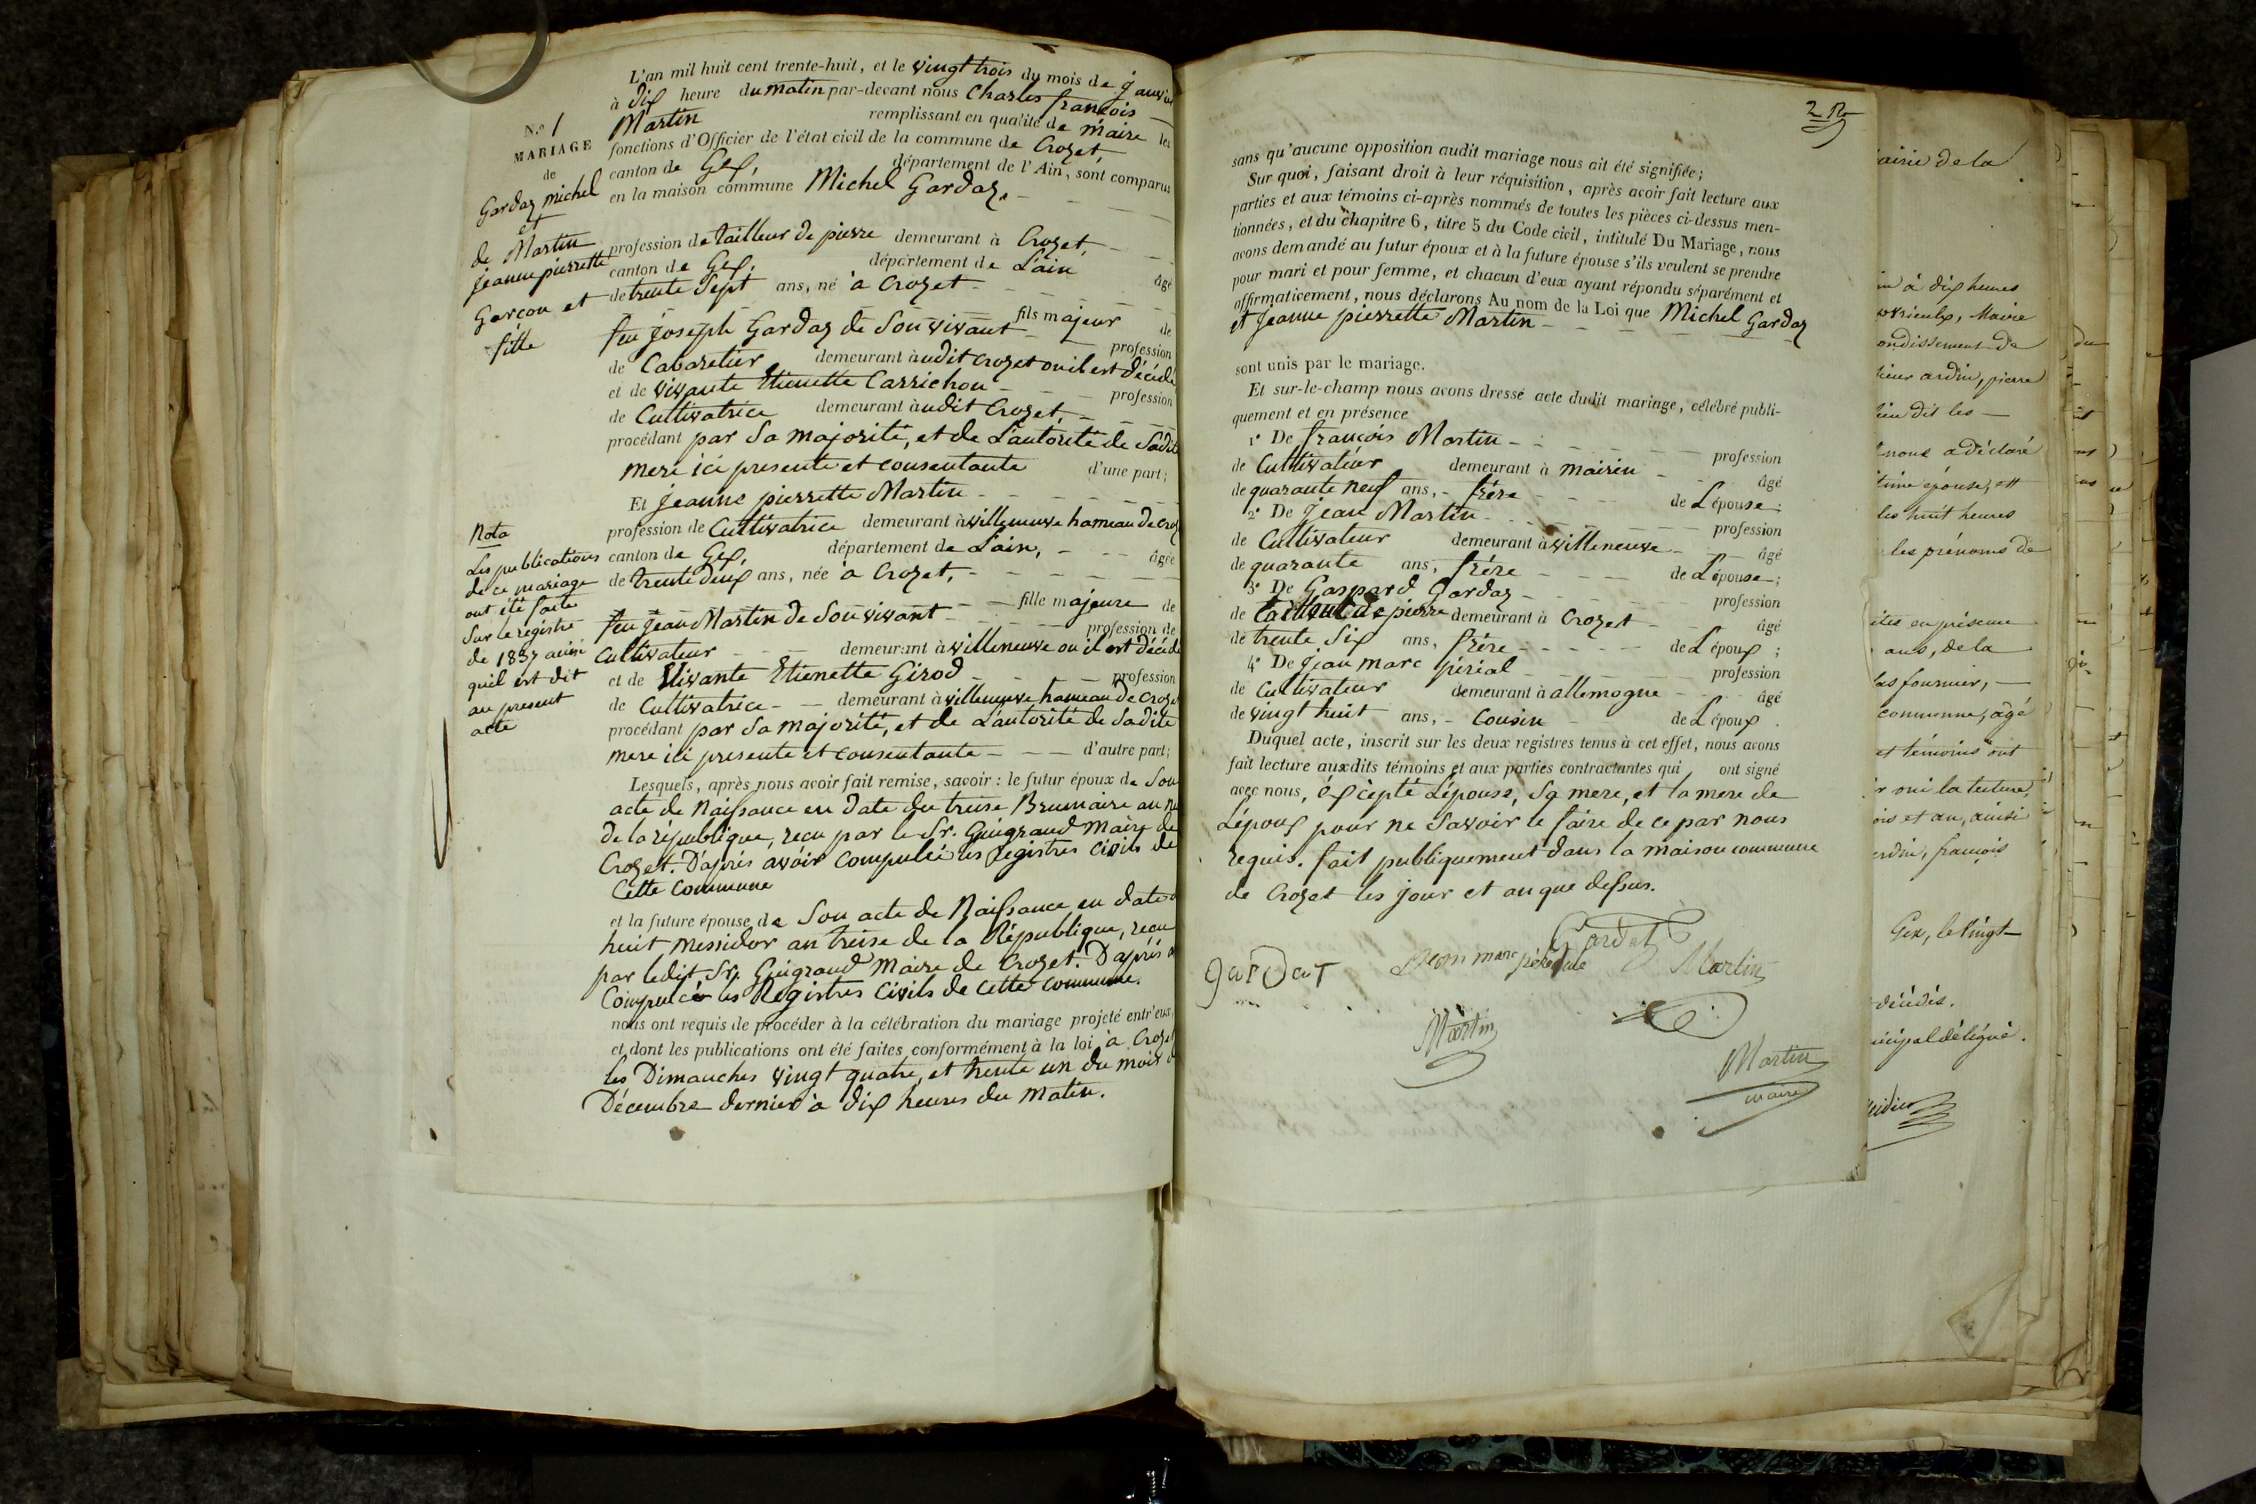 N.° 1
MARIAGE
de
Gardaz michel
et
de Martin
jeanne pierrette
Garçon et
fille
Nota
Les publications
de ce mariage
ont été faite
Sur le registre
de 1837 ainsi
quil est dit
au present
acte
L'an mil huit cent trente-huit, et le vingt trois du mois de janvier
à dix heure du matin par-devant nous Charles françois
Martin remplissant en qualité de maire les
fonctions d'Officier de l'état civil de la commune de Crozet,
canton de Gex, département de l'Ain, sont comparus
en la maison commune Michel Gardaz.
profession de tailleur de pierre demeurant à Crozet
canton de Gex, département de L'ain âgé
de trente Sept ans, né à Crozet
fils majeur de
feu joseph Gardaz de Son vivant profession
de Cabaretier demeurant audit Crozet ou il est décédé
et de vivante Etienette Carrichon profession
de Cultivatrice demeurant audit Crozet
procédant par Sa majorité, et de L'autorité de Sadite
mere ici presente et consentante d'une part;
Et jeanne pierrette Martin
profession de Cultivatrice demeurant à villeneuve hameau de Croz
canton de Gex, département de L'ain, âgée
de trente deux ans, née à Crozet,
fille majeure de
feu jean Martin de Son vivant profession de
Cultivateur demeurant à villeneuve ou il est décédé
et de vivante Etienette Girod profession
de Cultivatrice demeurant à villeneuve hameau de Croze
procédant par Sa majorité, et de L'autorité de Sadite
mere ici presente et consentante d'autre part;
Lesquels, après nous avoir fait remise, savoir : le futur époux de Son
acte de Naissance en date du treise Brumaire an
De la république, recu par le Sr. Guigraud Maire de
Crozet. D'après avoir compulsé les registres civils de
Cette Commune
et la future épouse de Son acte de Naissance en date
huit messidor an treise de la République, recu
par ledit Sr. Guigraud Maire de Crozet. D'après
Compulcér les Registres Civils de cette commune.
nous ont requis de procéder à la célébration du mariage projeté entr'eux,
et dont les publications ont été faites conformément à la loi à Crozet
les Dimanches vingt quatre, et trente un du mois
Décembre dernier à dix heures du matin.
sans qu'aucune opposition audit mariage nous ait été signifiée;
Sur quoi, faisant droit à leur réquisition, après avoir fait lecture aux
parties et aux témoins ci-après nommés de toutes les pièces ci-dessus men-
tionnées, et du chapitre 6, titre 5 du Code civil, intitulé Du Mariage, nous
avons demandé au futur époux et à la future épouse s'ils veulent se prendre
pour mari et pour femme, et chacun d'eux ayant répondu séparément et
affirmativement, nous déclarons Au nom de la Loi que Michel Gardaz
et jeanne pierrette Martin
sont unis par le mariage.
Et sur-le-champ nous avons dressé acte dudit mariage, célébré publi-
quement et en présence
1° De françois Martin profession
de Cultivateur demeurant à mairin âgé
de quarante neuf ans, frére de L'épouse;
2° De jean Martin profession
de Cultivateur demeurant à villeneuve âgé
de quarante ans, frére de L'épouse;
3° De Gaspard Gardaz profession
de tailleur de pierre demeurant à Crozet âgé
de trente Six ans, frére de L'époux;
4° De jean marc périal profession
de Cultivateur demeurant à allemogne âgé
de vingt huit ans, Cousin de L'époux.
Duquel acte, inscrit sur les deux registres tenus à cet effet, nous avons
fait lecture auxdits témoins et aux parties contractantes qui ont signé
avec nous, éxcépté L'épouse, Sa mere, et la mere de
L'époux pour ne Savoir le faire de ce par nous
requis. fait publiquement dans la maison commune
de Crozet les jour et an que dessus.
Gardaz
Jean marc
Martin
Martin
Martin
maire
airie de la
à dix heures
Maire
ondissement de
ardin, pierre
lieu dit les
nous a déclaré
time épouse, et
les huit heures
les prénoms de
ites en présence
ans, de la
las fournier,
commune, âgé
et témoins ont
oui la lecture,
ois et an, ainsi
ardin, françois
Gex, le vingt
décédés.
icipal délégué.